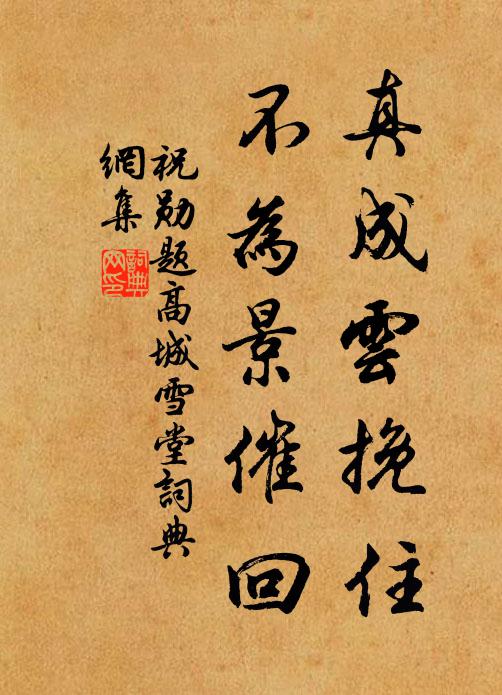 真成雲挽住
不為景催回
祝勋题高城雪堂詞典
網集
詞典
网印